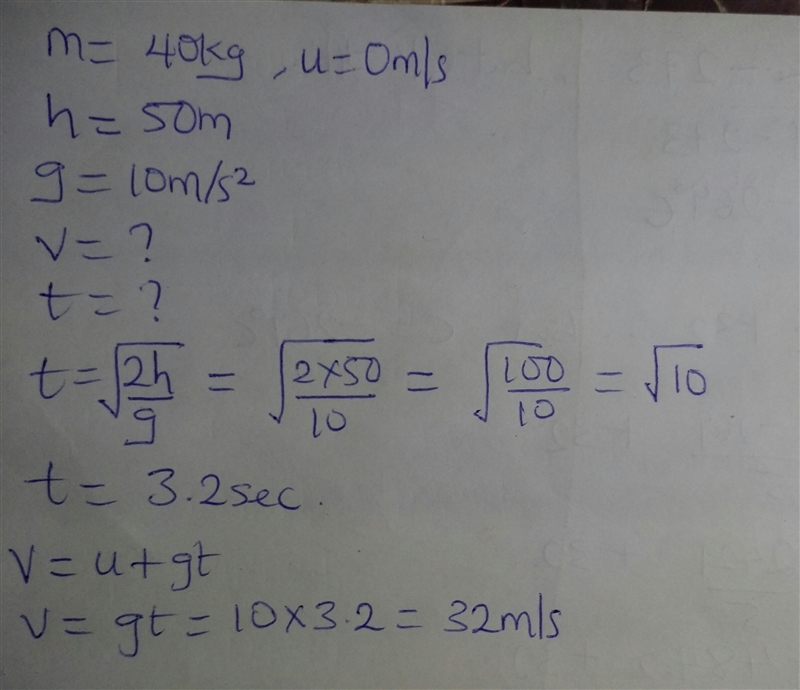 m = 40kg, u = 0m/s
h = 50m
g = 10m/s²
v = ?
t = ?
t = √(2h/g) = √(2×50/10) = √(100/10) = √10
t = 3.2sec.
v = u + gt
v = gt = 10 × 3.2 = 32m/s